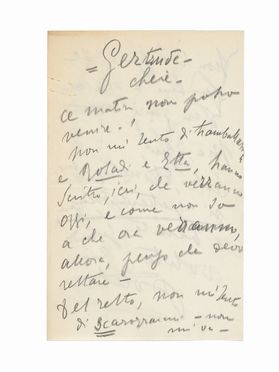 = Gertrude -
chère -
ce matin non posso
venire - !
non mi sento di tramballare
e Roladi e Etta, hanno
scritto, ieri, che verranno
oggi, e come non so
a che ora verranno,
allora, penso che devo
restare -
Del resto, non mi sento
di scarozzarmi - non
mi va -